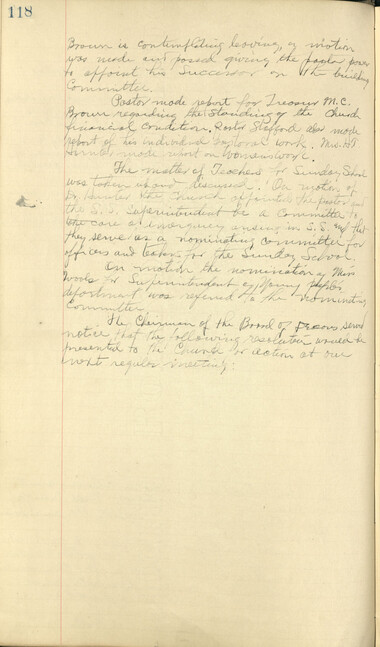 118
Brown is contemplating leaving, a motion
was made and passed giving the pastor power
to appoint his successor on the building
Committee.
Pastor made report for Treasurer M.C.
Brown regarding the standing of the Church
financial condition. Pastor Stafford also made
report of his individual pastoral work. Mrs.
made report on
The matter of Teachers for Sunday School
was taken up and discussed. On motion of
the Church appointed the pastor and
the S. S. Superintendent be a committee to
care in S. S. and that
they serve as a nominating committee for
officers and for the Sunday School.
On motion the nomination of Miss
for Superintendent of
department was referred to the nominating
Committee.
The Chairman of the Board of Deacons served
notice that the following resolution would be
presented to the Church for action at our
next regular meeting: